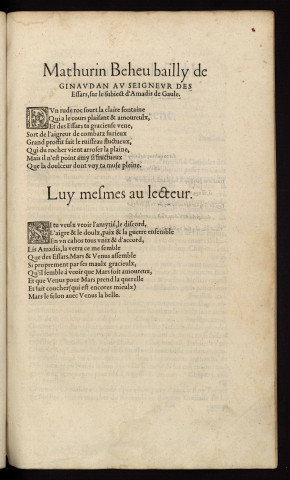 Mathurin Beheu bailly de
GINAVDAN AV SEIGNEVR DES
Essars, sur le subiect d'Amadis de Gaule.
D'Vn rude roc sourt la claire fontaine
Qui a le cours plaisant & amoureulx,
Et des Essars ta gracieuse vene,
Sort de l'aigreur de combatz furieux
Grand proffit fait le ruisseau fluctueux,
Qui du rocher vient arroser la plains,
Mais il n'est point amy si fructueux
Que la doulceur dont voy ta muse pleine.
Luy mesmes au lecteur.
SI tu veulx veoir l'amytié, le discord,
L'aigre & le doulx, paix & la guerre ensemble
En vn cahos tous vniz & d'accord,
Lis Amadis, la verra ce me semble
Que des Essars, Mars & Venus assemble
Si proprement par ses maulx gracieulx,
Qu'il semble à veoir que Mars soit amoureux,
Et que Venus pour Mars prend la querelle
Et fait coucher (qui est encores mieulx)
Mars le felon auec Venus la belle.